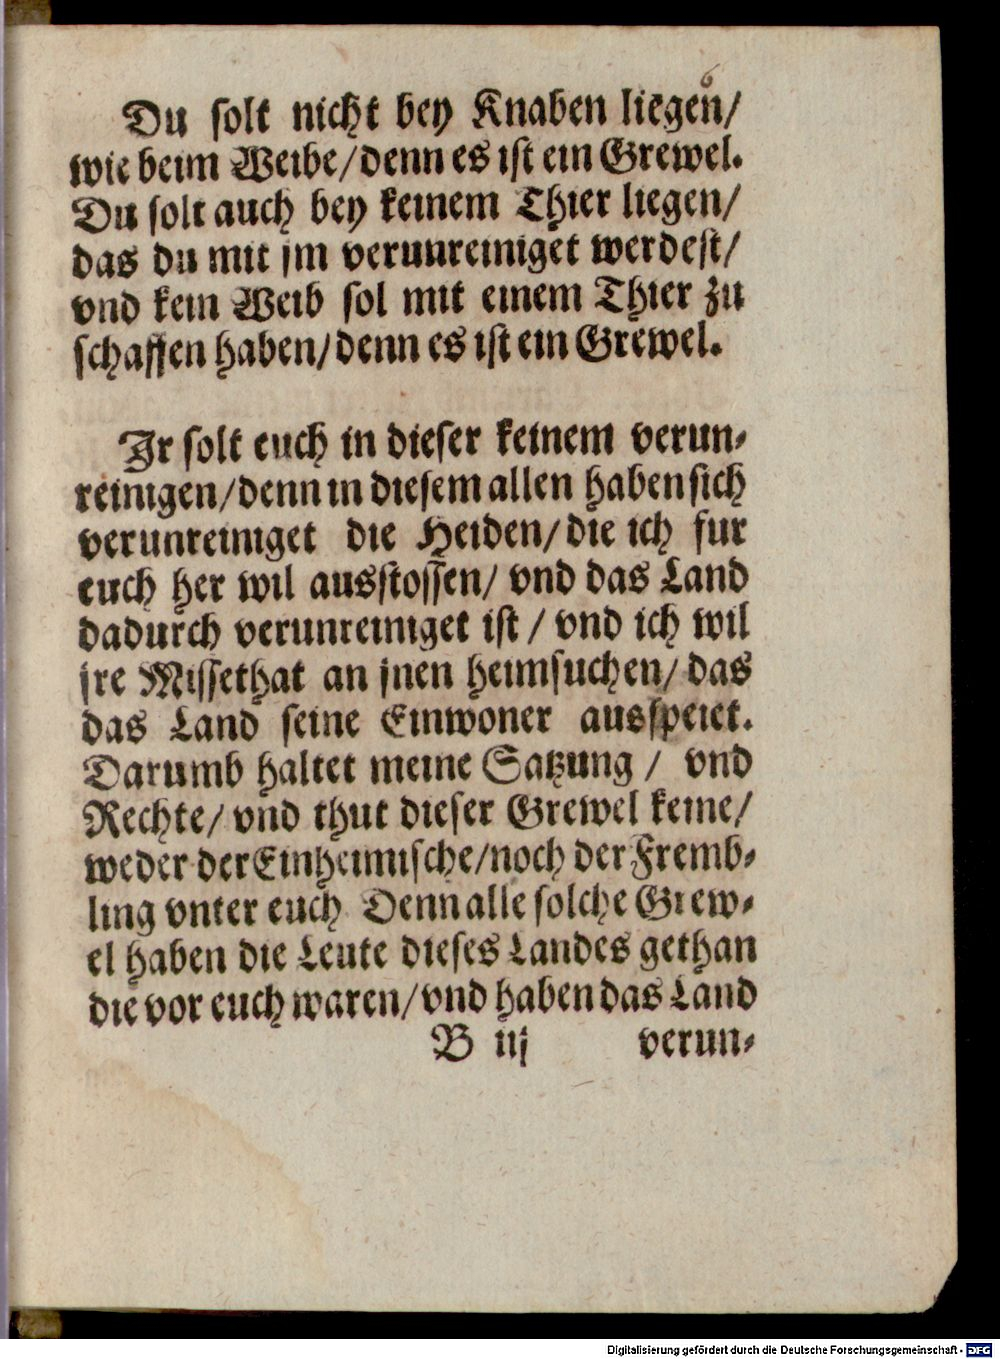 6
Du solt nicht bey Knaben liegen/
wie beim Weibe/denn es ist ein Grewel.
Du solt auch bey keinem Thier liegen/
das du mit jm verunreiniget werdest/
vnd kein Weib sol mit einem Thier zu
schaffen haben/denn es ist ein Grewel.
Jr solt euch in dieser keinem verun-
reinigen/denn in diesem allen haben sich
verunreiniget die Heiden/die ich fur
euch her wil ausstossen/ vnd das Land
dadurch verunreiniget ist / vnd ich wil
jre Missethat an jnen heimsuchen/ das
das Land seine Einwoner ausspeiet.
Darumb haltet meine Satzung / vnd
Rechte/ vnd thut dieser Grewel keine/
weder der Einheimische/noch der Fremb-
ling vnter euch Denn alle solche Grew-
el haben die Leute dieses Landes gethan
die vor euch waren/vnd haben das Land
B iij verun-
Digitalisierung gefördert durch die Deutsche Forschungsgemeinschaft - DFG